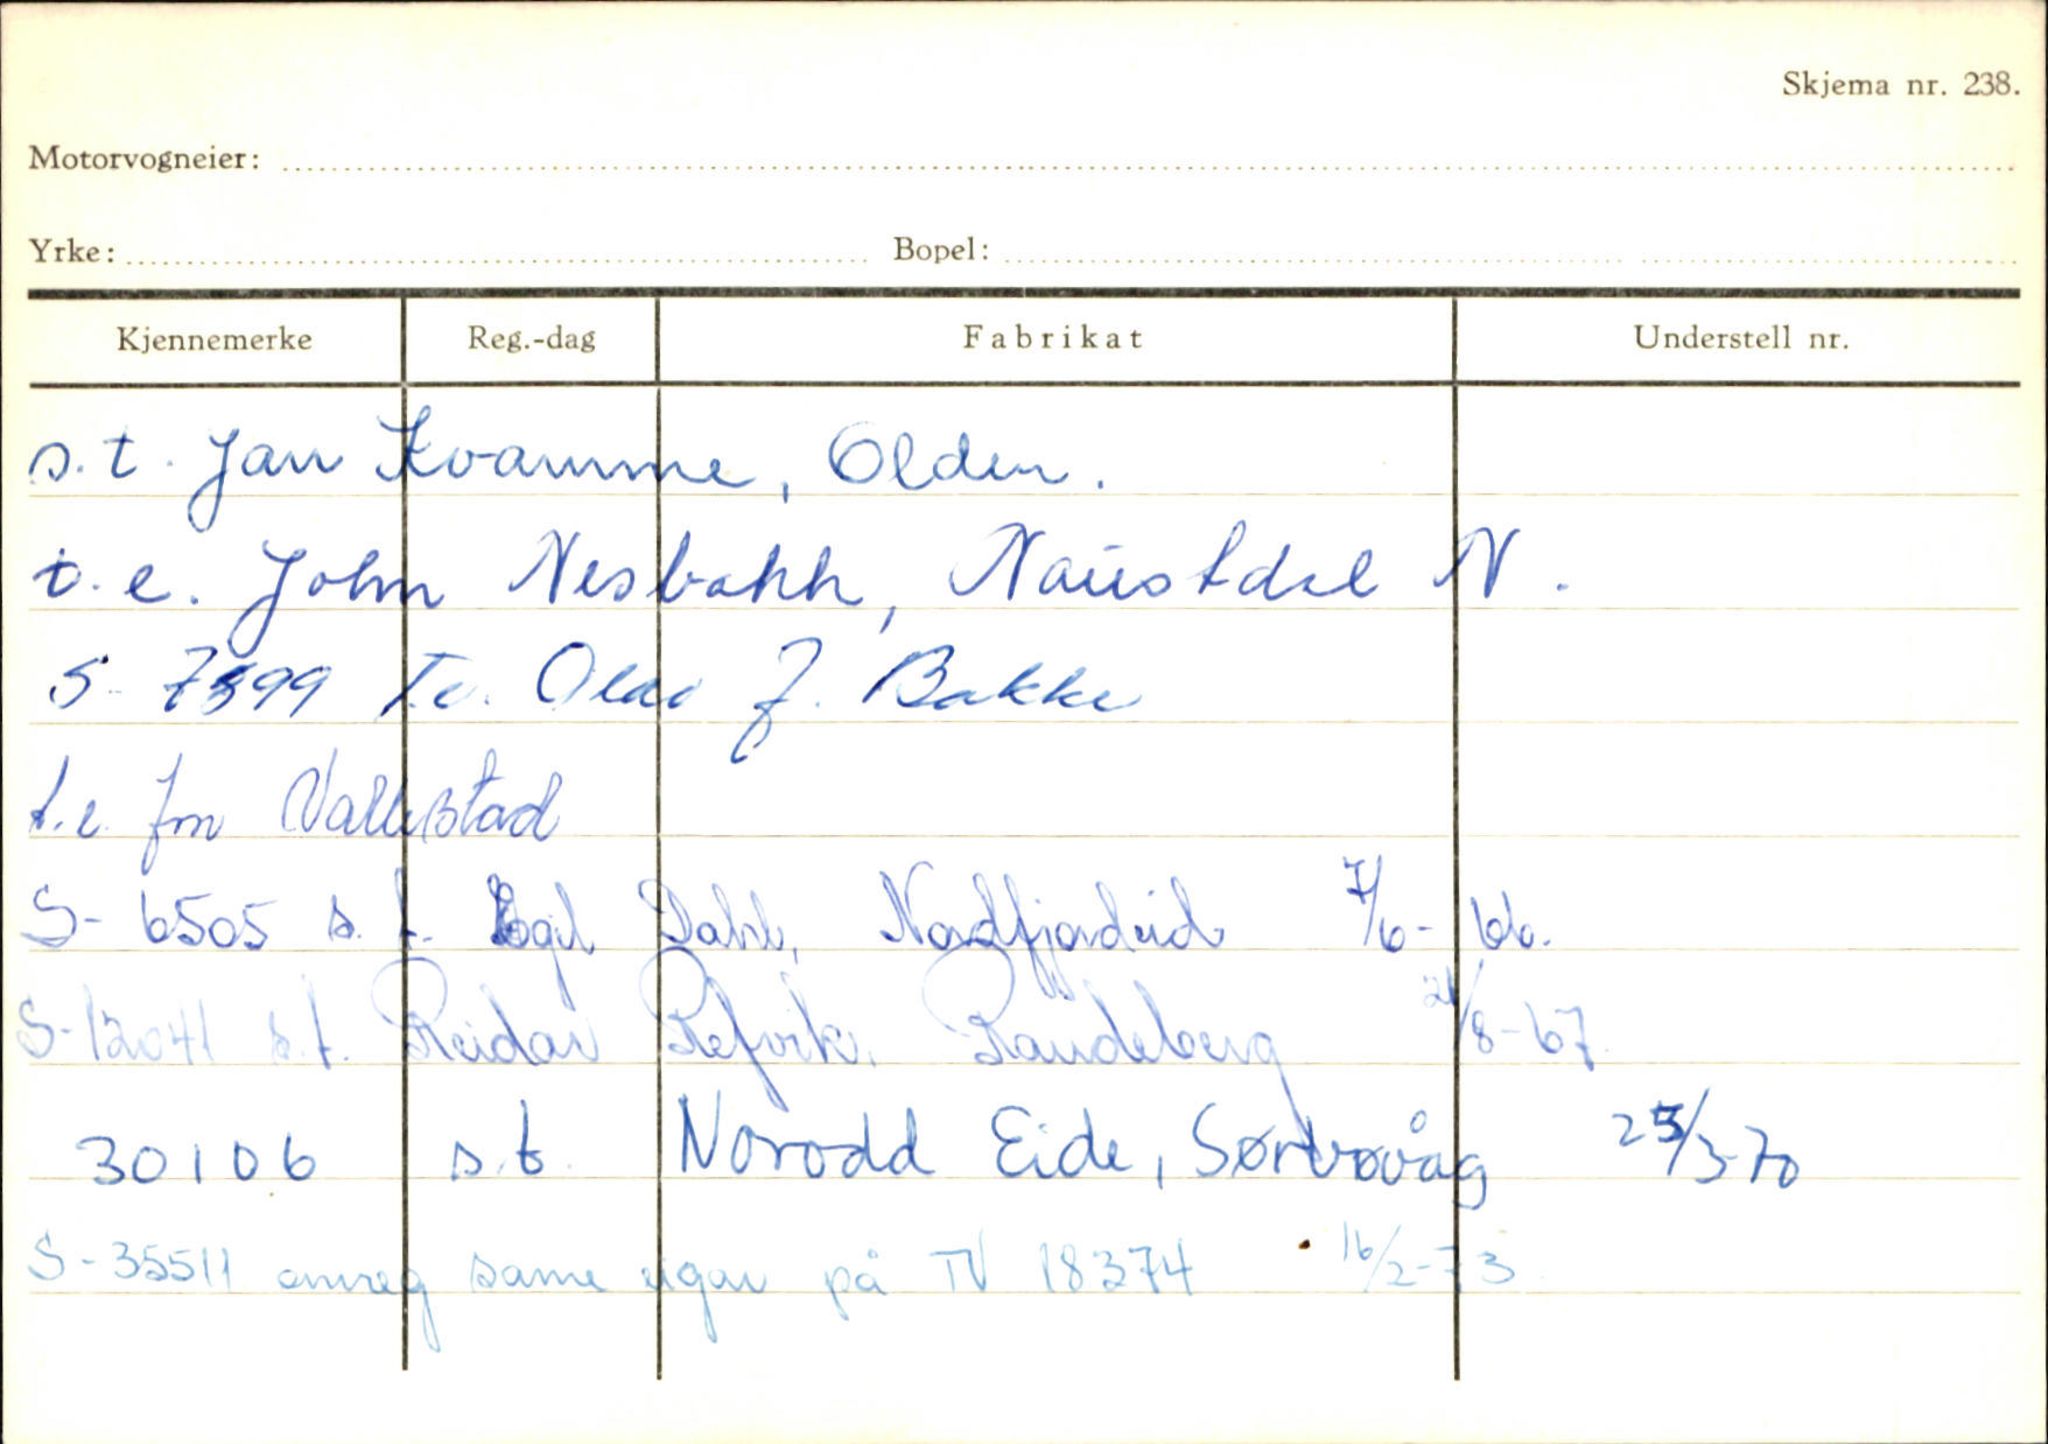 Skjema nr. 238.
Motorvogneier:
Yrke: Bopel:
Kjennemerke Reg.-dag Fabrikat Understell nr.
s.t. Jan Kvamme, Olden.
t.e. John Nesbakk, Naustdal N.
S-7599 T.e. Olav J. Bakke
t.e. frn Vallestad
S-6505 s.t. Egil Dahl, Nordfjordeid 7/6-66.
S-12041 s.t. Reidar Refvik, Raudeberg /8-67.
30106 s.t. Norodd Eide, Sørbøvåg 25/3-70
S-35511 omreg same eigar på TV 18374 16/2-73.